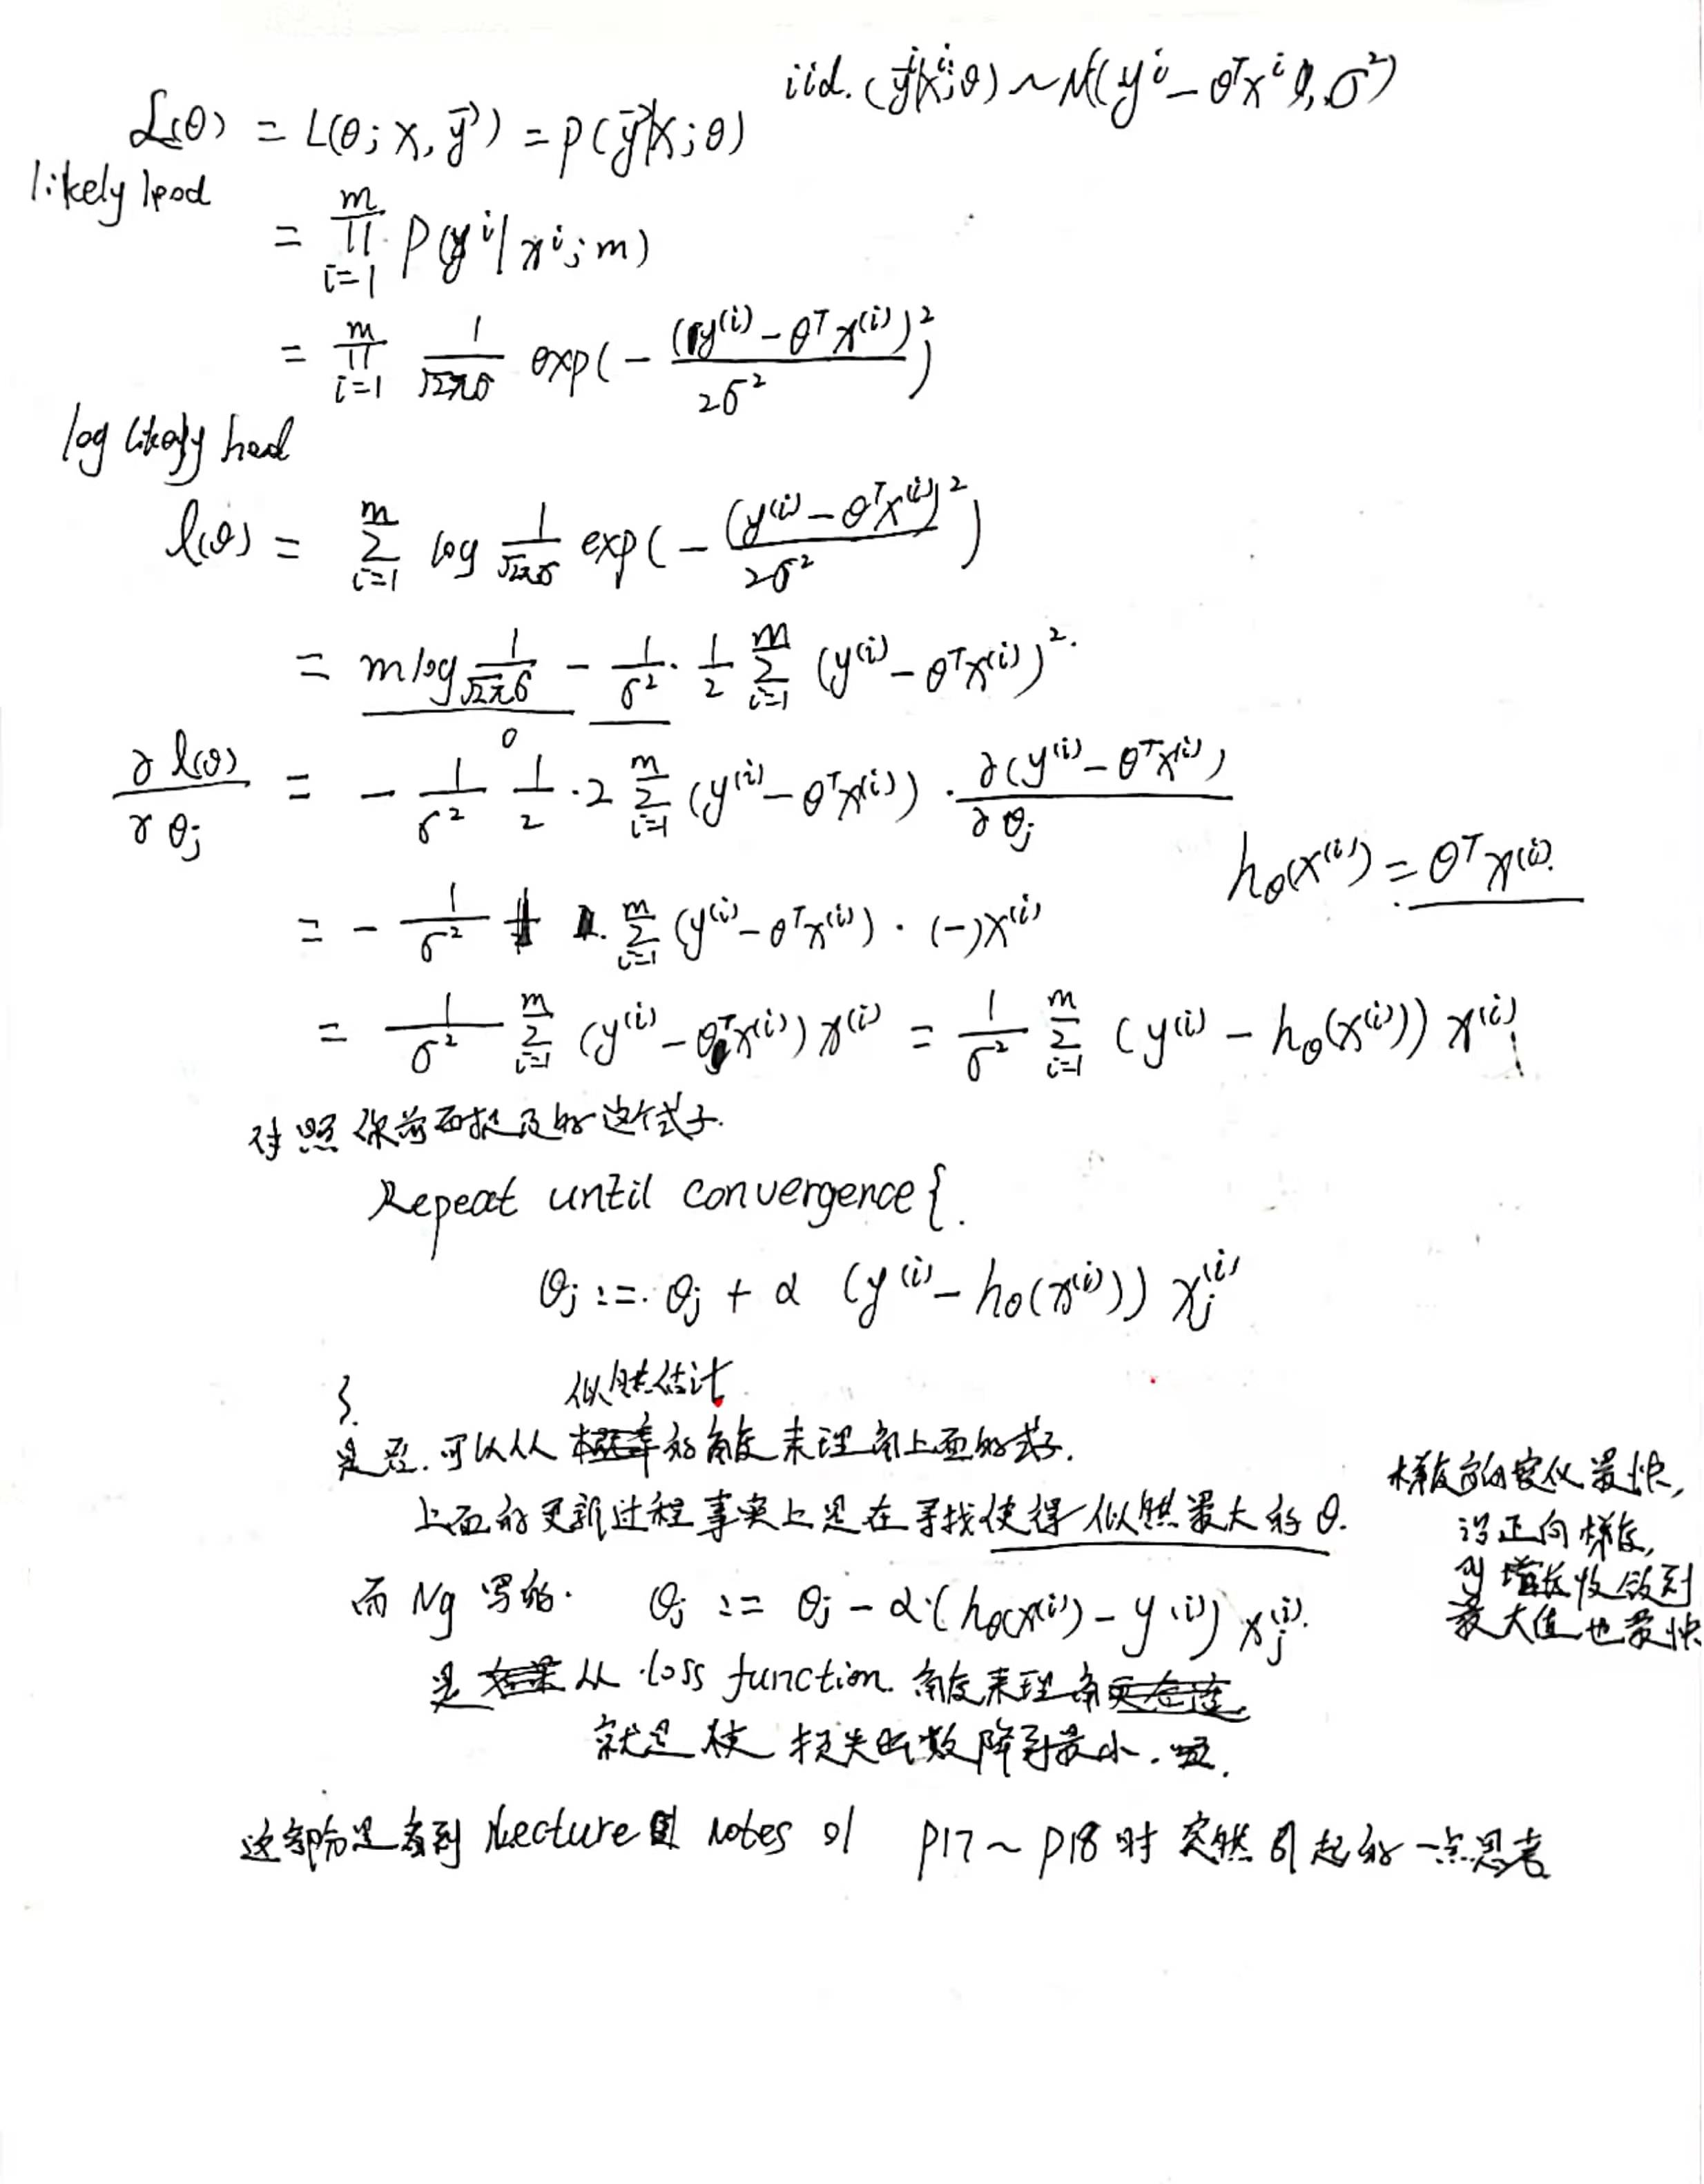 iid. (y⃗ⁱ|xⁱ;θ) ~ N(yⁱ - θᵀxⁱ, σ²)
L(θ) = L(θ; X, y⃗) = p(y⃗|X; θ)
likelyhood
= ∏_{i=1}^{m} P(yⁱ | xⁱ; m)
= ∏_{i=1}^{m} 1/(√2πσ) exp(- (y⁽ⁱ⁾ - θᵀx⁽ⁱ⁾)² / 2σ²)
log likelyhood
l(θ) = ∑_{i=1}^{m} log 1/(√2πσ) exp(- (y⁽ⁱ⁾ - θᵀx⁽ⁱ⁾)² / 2σ²)
= m log 1/(√2πσ) - 1/σ² · 1/2 ∑_{i=1}^{m} (y⁽ⁱ⁾ - θᵀx⁽ⁱ⁾)².
0
∂l(θ)/∂θⱼ = - 1/σ² 1/2 · 2 ∑_{i=1}^{m} (y⁽ⁱ⁾ - θᵀx⁽ⁱ⁾) · ∂(y⁽ⁱ⁾ - θᵀx⁽ⁱ⁾)/∂θⱼ
h_θ(x⁽ⁱ⁾) = θᵀx⁽ⁱ⁾.
= - 1/σ² ∑_{i=1}^{m} (y⁽ⁱ⁾ - θᵀx⁽ⁱ⁾) · (-)x⁽ⁱ⁾
= 1/σ² ∑_{i=1}^{m} (y⁽ⁱ⁾ - θᵀx⁽ⁱ⁾) x⁽ⁱ⁾ = 1/σ² ∑_{i=1}^{m} (y⁽ⁱ⁾ - h_θ(x⁽ⁱ⁾)) x⁽ⁱ⁾
对照你前面提及的这个式子.
Repeat until convergence {.
θⱼ := θⱼ + α (y⁽ⁱ⁾ - h_θ(x⁽ⁱ⁾)) xⱼ⁽ⁱ⁾
}.
似然估计
是否.可以从概率的角度来理解上面的式子.
上面的更新过程事实上是在寻找使得似然最大的θ.
梯度方向变化最快,
沿正向梯度,
则增长收敛到
最大值也最快
而 Ng 写的. θⱼ := θⱼ - α·(h_θ(x⁽ⁱ⁾) - y⁽ⁱ⁾) xⱼ⁽ⁱ⁾.
是从 loss function. 角度来理解
就是使损失函数降到最小.
这部分是看到 lecture notes 01 P17 ~ P18 时突然引起的一点思考